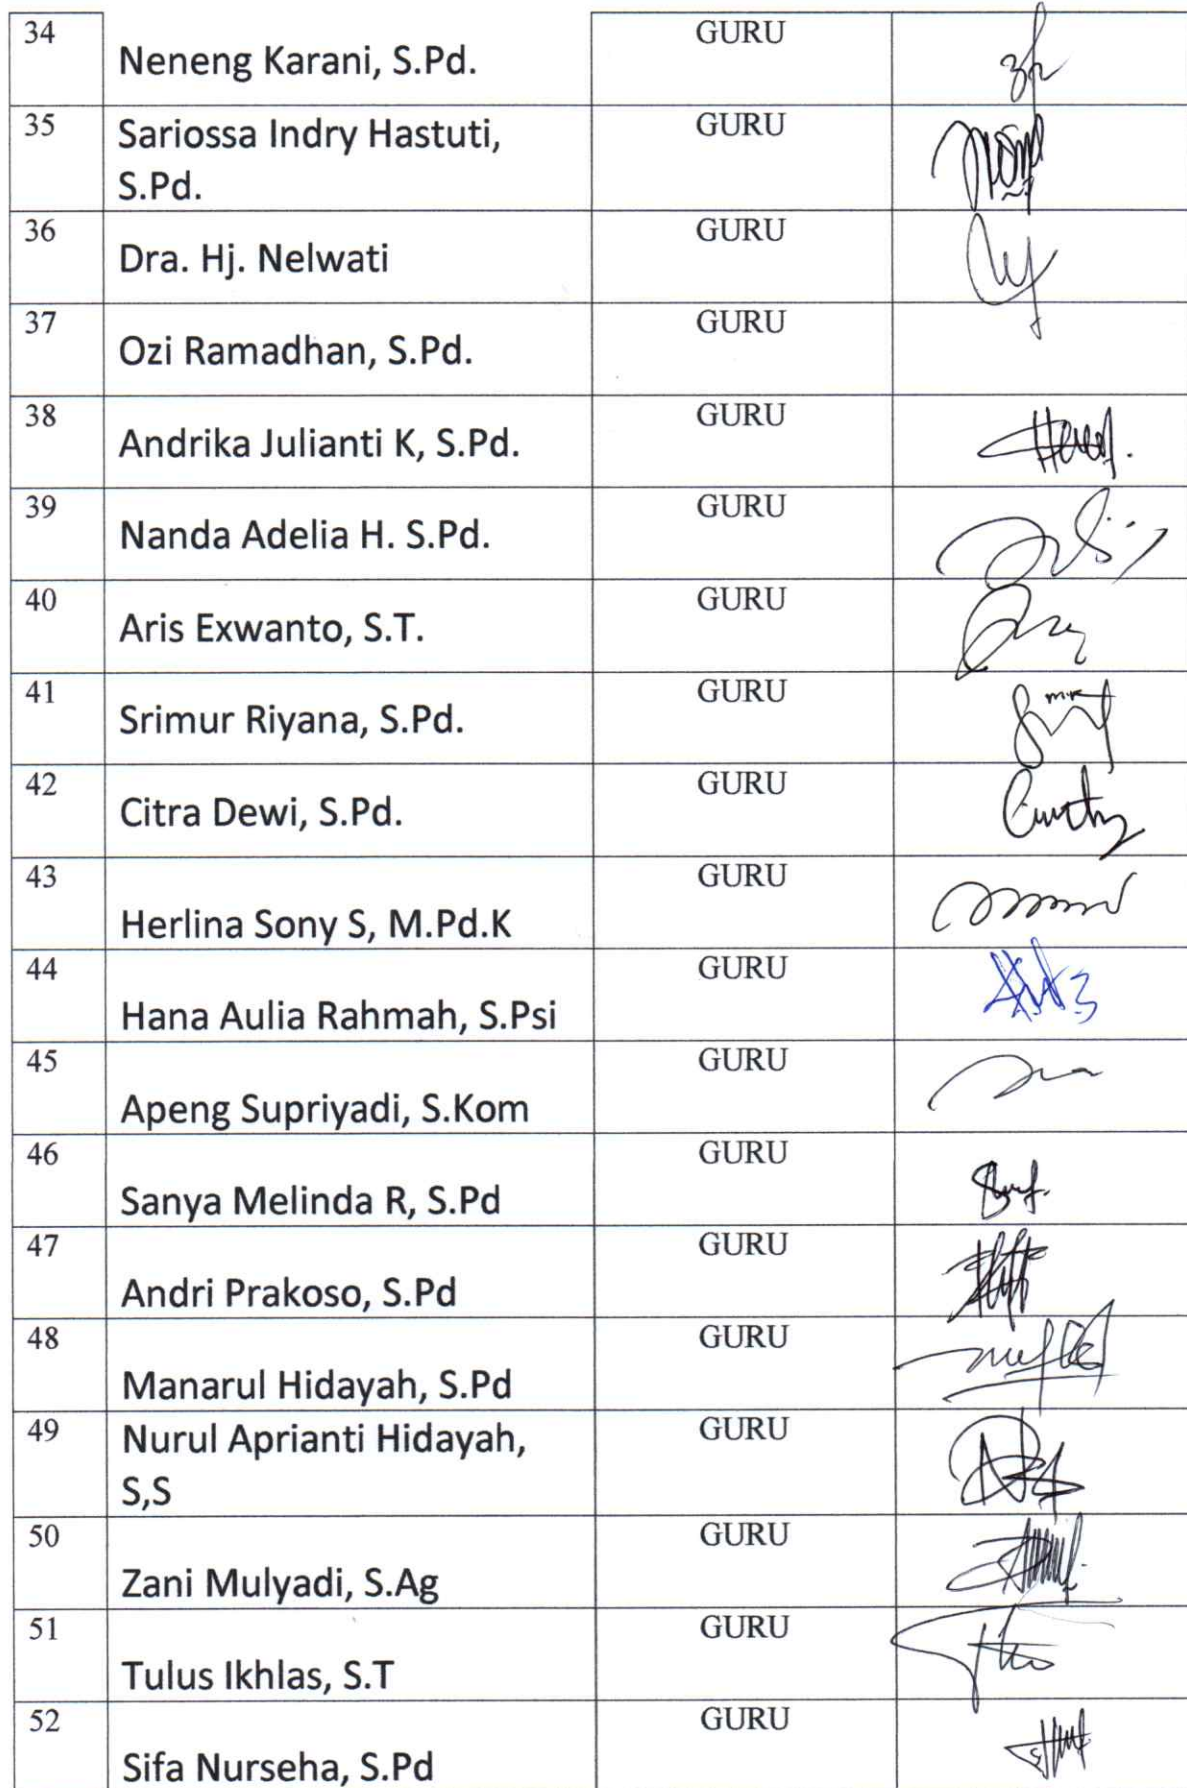 34 Neneng Karani, S.Pd. GURU
35 Sariossa Indry Hastuti, GURU
S.Pd.
36 Dra. Hj. Nelwati GURU
37 Ozi Ramadhan, S.Pd. GURU
38 Andrika Julianti K, S.Pd. GURU
39 Nanda Adelia H. S.Pd. GURU
40 Aris Exwanto, S.T. GURU
41 Srimur Riyana, S.Pd. GURU
42 Citra Dewi, S.Pd. GURU
43 Herlina Sony S, M.Pd.K GURU
44 Hana Aulia Rahmah, S.Psi GURU
45 Apeng Supriyadi, S.Kom GURU
46 Sanya Melinda R, S.Pd GURU
47 Andri Prakoso, S.Pd GURU
48 Manarul Hidayah, S.Pd GURU
49 Nurul Aprianti Hidayah, GURU
S,S
50 Zani Mulyadi, S.Ag GURU
51 Tulus Ikhlas, S.T GURU
52 Sifa Nurseha, S.Pd GURU